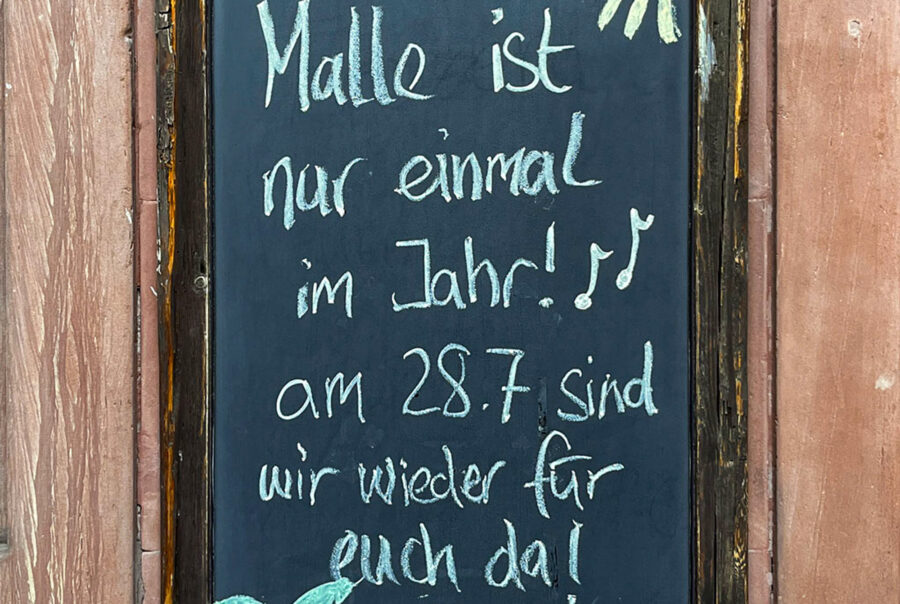 Malle ist
nur einmal
im Jahr!
am 28.7 sind
wir wieder für
euch da!